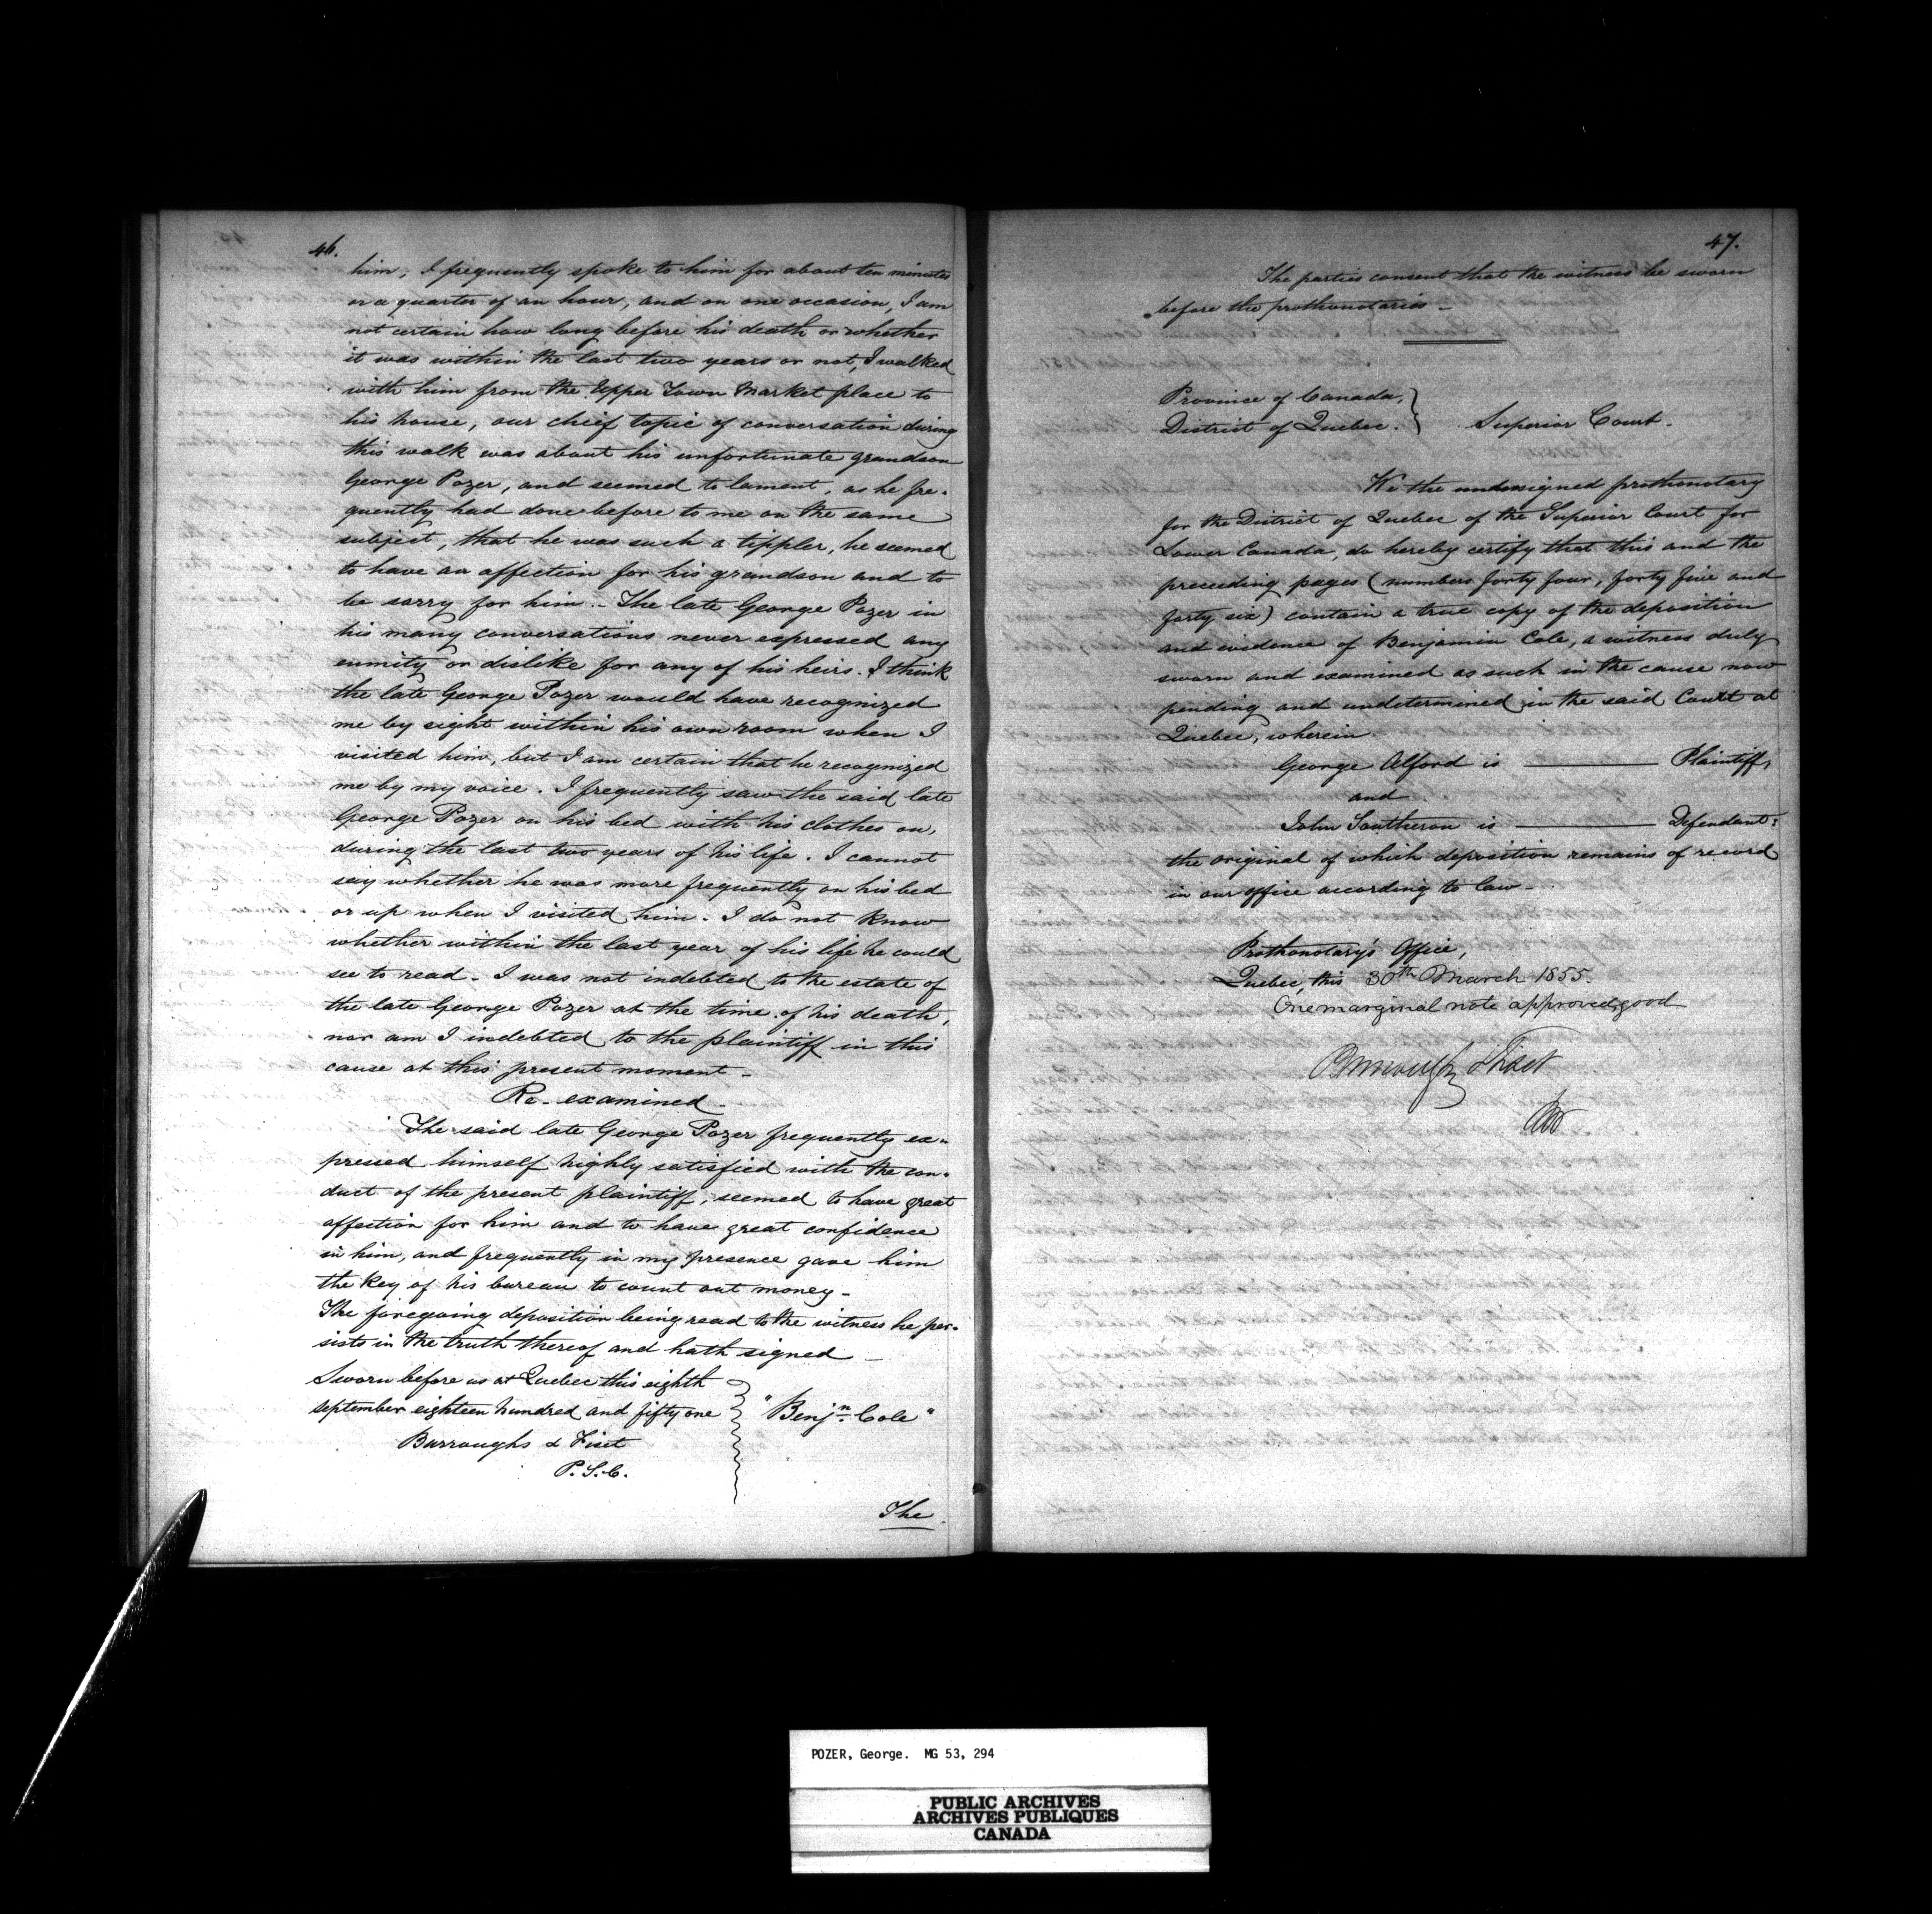 46.
him, I frequently spoke to him for about ten minutes
or a quarter of an hour, and on one occasion, I am
not certain how long before his death or whether
it was within the last two years or not, I walked
with him from the Upper Town Market place to
his house, our chief topic of conversation during
this walk was about his unfortunate grandson
George Pozer, and seemed to lament, as he fre-
quently had done before to me on the same
subject, that he was such a tippler, he seemed
to have an affection for his grandson and to
be sorry for him. - The late George Pozer in
his many conversations never expressed any
enmity or dislike for any of his heirs. I think
the late George Pozer would have recognized
me by sight within his own room when I
visited him, but I am certain that he recognized
me by my voice. I frequently saw the said late
George Pozer on his bed with his clothes on,
during the last two years of his life. I cannot
say whether he was more frequently on his bed
or up when I visited him. I do not know
whether within the last year of his life he could
see to read. I was not indebted to the estate of
the late George Pozer at the time of his death,
nor am I indebted to the plaintiff in this
cause at this present moment -
Re-examined -
The said late George Pozer frequently ex-
pressed himself highly satisfied with the con-
duct of the present plaintiff, seemed to have great
affection for him and to have great confidence
in him, and frequently in my presence gave him
the key of his bureau to count out money -
The foregoing deposition being read to the witness he per-
sists in the truth thereof and hath signed -
Sworn before us at Quebec this eighth
september eighteen hundred and fifty one
"Benjn. Cole"
Burroughs & Fiset
P. S. C.
The
47.
The parties consent that the witness be sworn
before the prothonotaries -
Province of Canada,
District of Quebec. } Superior Court.
We the undersigned prothonotary
for the District of Quebec of the Superior Court for
Lower Canada, do hereby certify that this and the
preceding pages (numbers forty four, forty five and
forty six) contain a true copy of the deposition
and evidence of Benjamin Cole, a witness duly
sworn and examined as such in the cause now
pending and undetermined in the said Court at
Quebec, wherein
George Alford is ———— Plaintiff,
and
John Southeron is ———— Defendant:
the original of which deposition remains of record
in our office according to law -
Prothonotary's Office,
Quebec, this 30th March 1855.
One marginal note approved, good
Burroughs & Fiset
POZER, George. MG 53, 294
PUBLIC ARCHIVES
ARCHIVES PUBLIQUES
CANADA